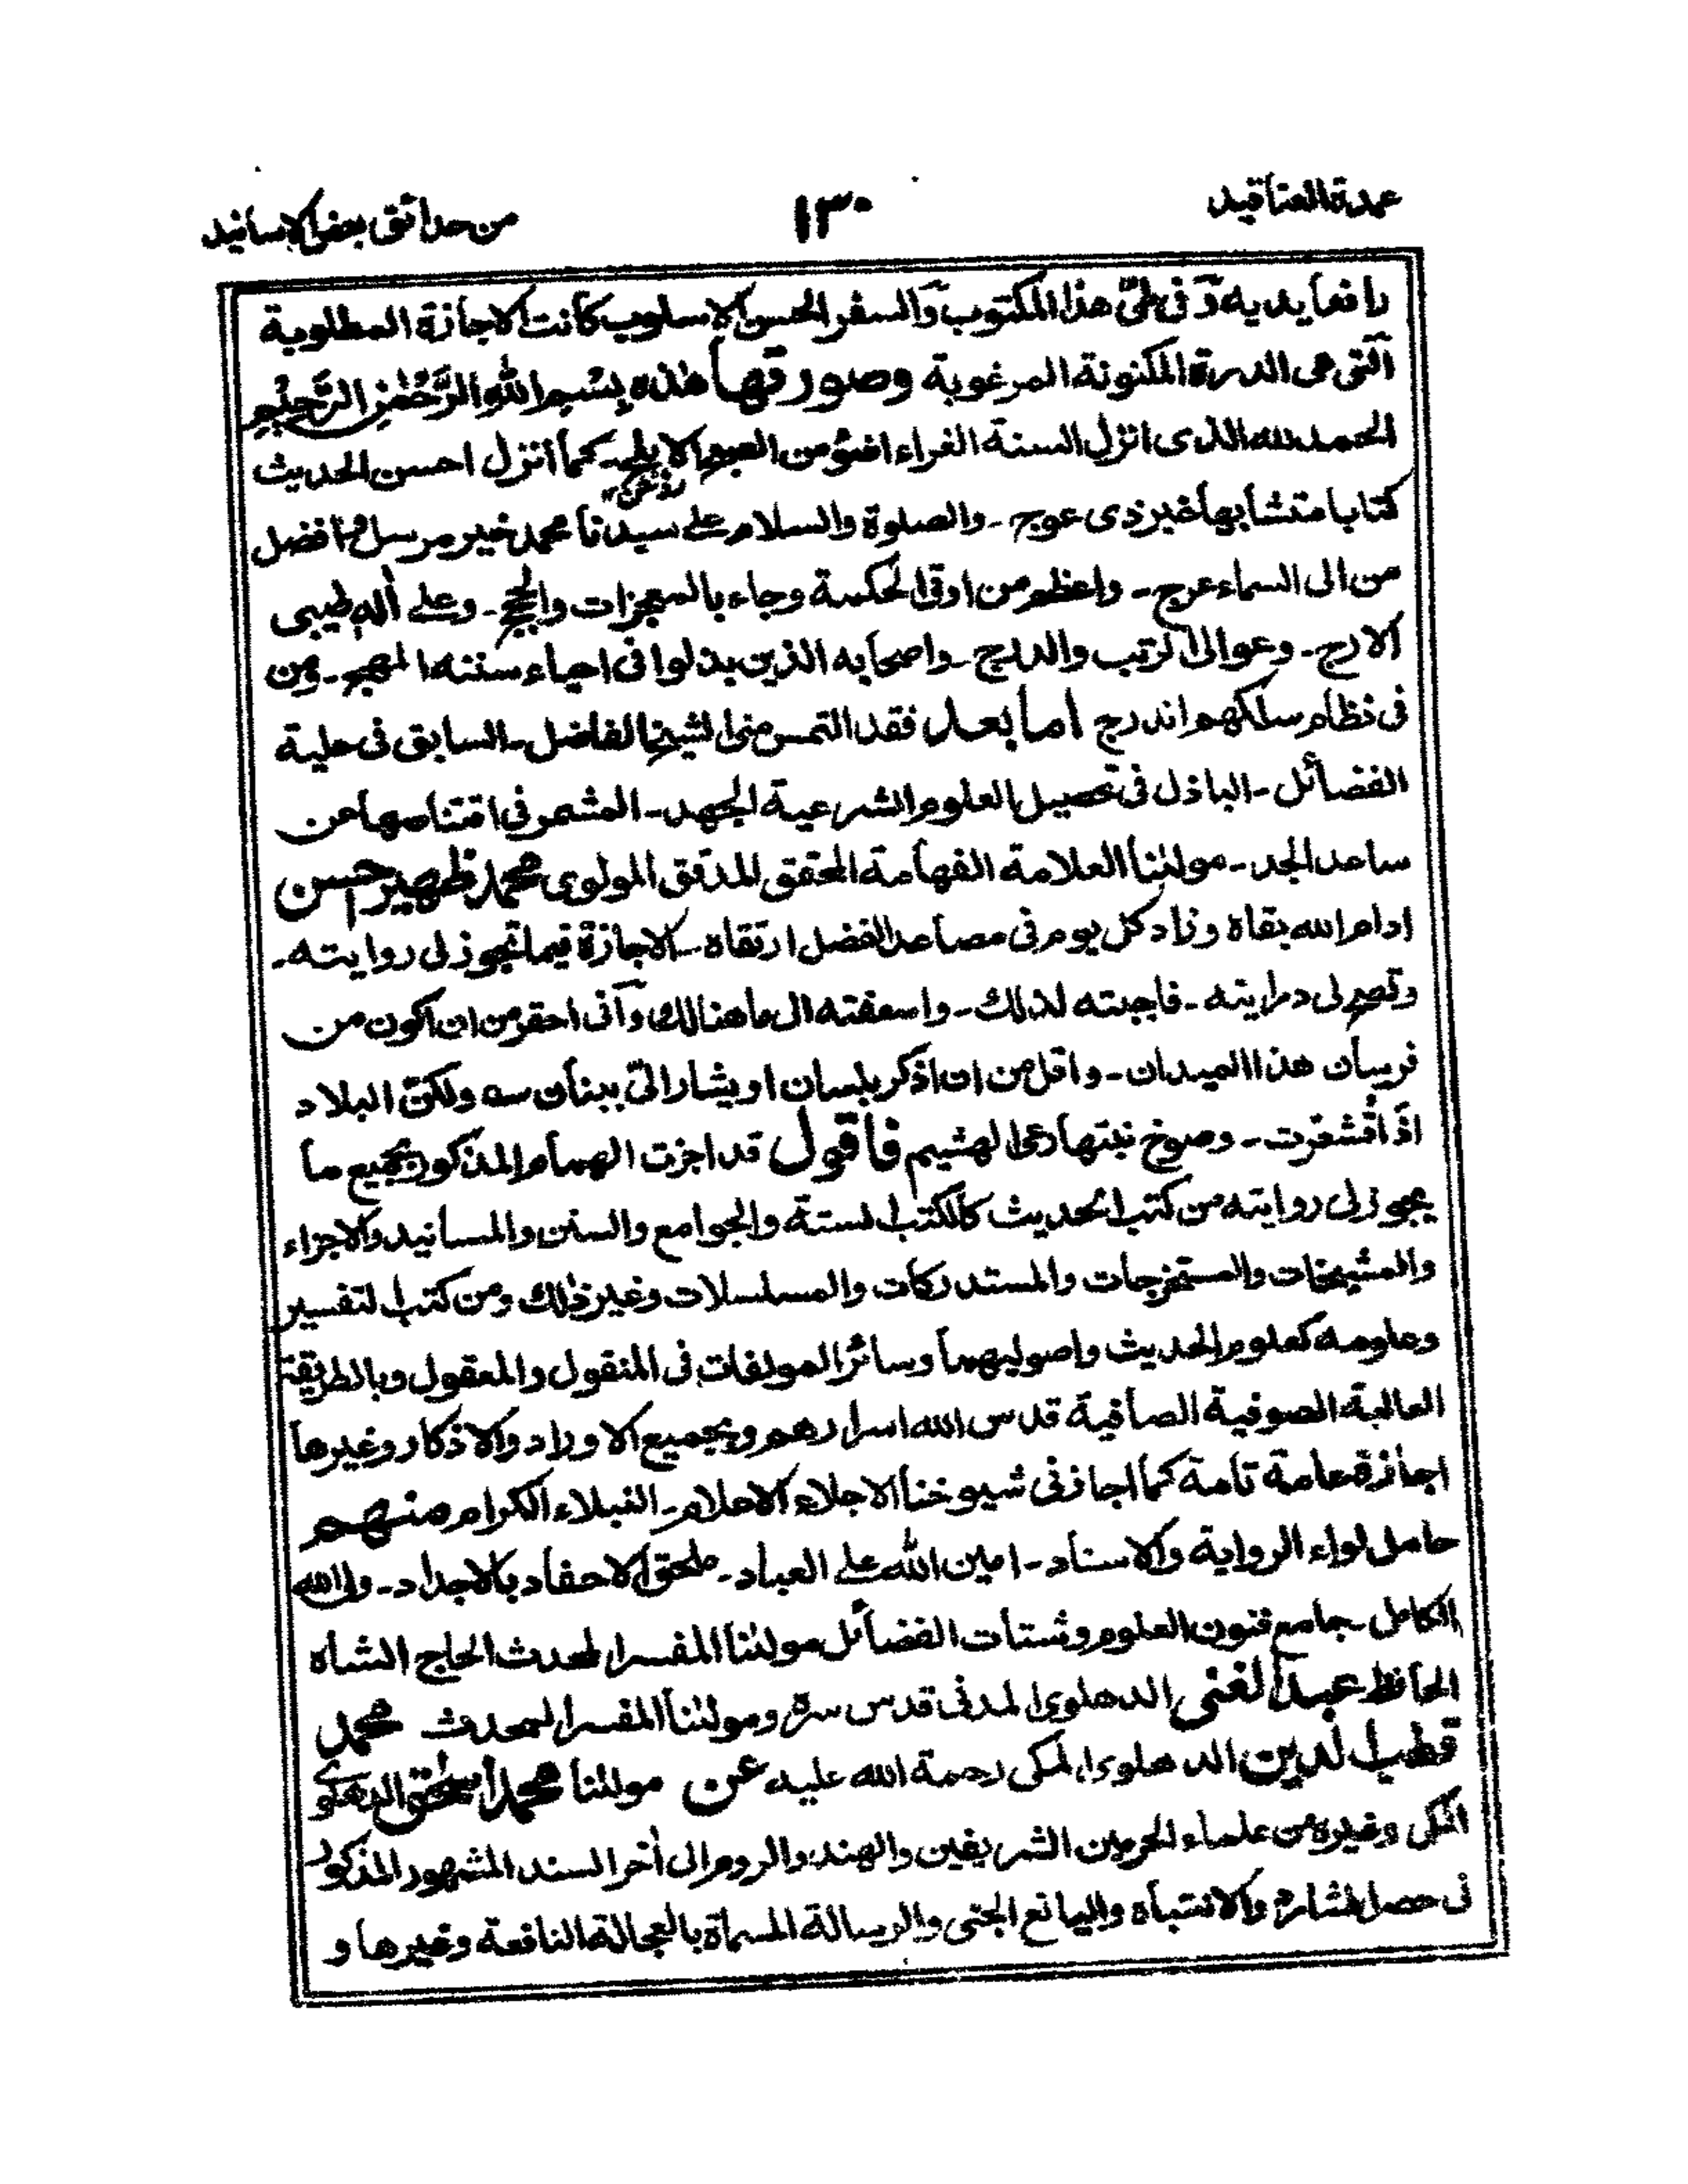 عمدة العناقيد ١٣٠ من حدائق بعض الاسانيد
رافعا يديه وفى طىّ هذا المكتوب والسفر الحسن الاسلوب كانت الاجازة المطلوبة
التى هى الدرة المكنونة المرغوبة وصورتها هذه بِسْمِ اللهِ الرَّحْمٰنِ الرَّحِيْمِ
الحمد لله الذى انزل السنة الغراء اضوٴ من الصبح الابلج ـ كما انزل احسن الحديث
كتابا متشابها غير ذى عوج ـ والصلوة والسلام على سيدنا محمد خير مرسل وافضل
من الى السماء عرج ـ واعظم من اوتى الحكمة وجاء بالمعجزات والحجج ـ وعلى أله طيبى
الارج ـ وعوالى الرتب والدرج ـ واصحابه الذين بذلوا فى احياء سننه المهج ـ ومن
فى نظام سلكهم اندرج اما بعد فقد التمس منى الشيخ الفاضل ـ السابق فى حلية
الفضائل ـ الباذل فى تحصيل العلوم الشرعية الجهد ـ المشمر فى اقتناصها عن
ساعد الجد ـ مولٰنا العلامة الفهامة المحقق المدقق المولوى محمد ظهير احسن
ادام الله بقاه وزاد كل يوم فى مصاعد الفضل ارتقاه ـ الاجازة فيما تجوز لى روايته ـ
وتصح لى درايته ـ فاجبته لذلك ـ واسعفته الى ما هنالك وأنى احقر من ان اكون من
فرسان هذا الميدان ـ واقل من ان اذكر بلسان او يشار الىّ ببنان سه ولكن البلاد
اذا اقشعرت ـ وصوح نبتها رعى الهشيم فاقول قد اجزت الهمام المذكور بجميع ما
يجوز لى روايته من كتب الحديث كالكتب الستة والجوامع والسنن والمسانيد والاجزاء
والمشيخات والمستخرجات والمستدركات والمسلسلات وغير ذلك ومن كتب التفسير
وعلومه كعلوم الحديث واصوليهما وسائر المولفات فى المنقول والمعقول وبالطريقة
العالية الصوفية الصافية قدس الله اسرارهم وبجميع الاوراد والاذكار وغيرها
اجازة عامة تامة كما اجازنى شيوخنا الاجلاء الاعلام ـ النبلاء الكرام منهم
حامل لواء الرواية والاسناد ـ امين الله على العباد ـ ملحق الاحفاد بالاجداد ـ ولى الله
الكامل ـ جامع فنون العلوم وشتات الفضائل مولٰنا المفسر المحدث الحاج الشاه
الحافظ عبد الغنى الدهلوى المدنى قدس سره ومولٰنا المفسر المحدث محمد
قطب الدين الدهلوى المكى رحمة الله عليه عن مولٰنا محمد اسحٰق الدهلوى
المكى وغيره من علماء الحرمين الشريفين والهند والروم الى أخر السند المشهور المذكور
فى حصر الشارد والانتباه واليانع الجنى والرسالة المسماة بالعجالة النافعة وغيرها و